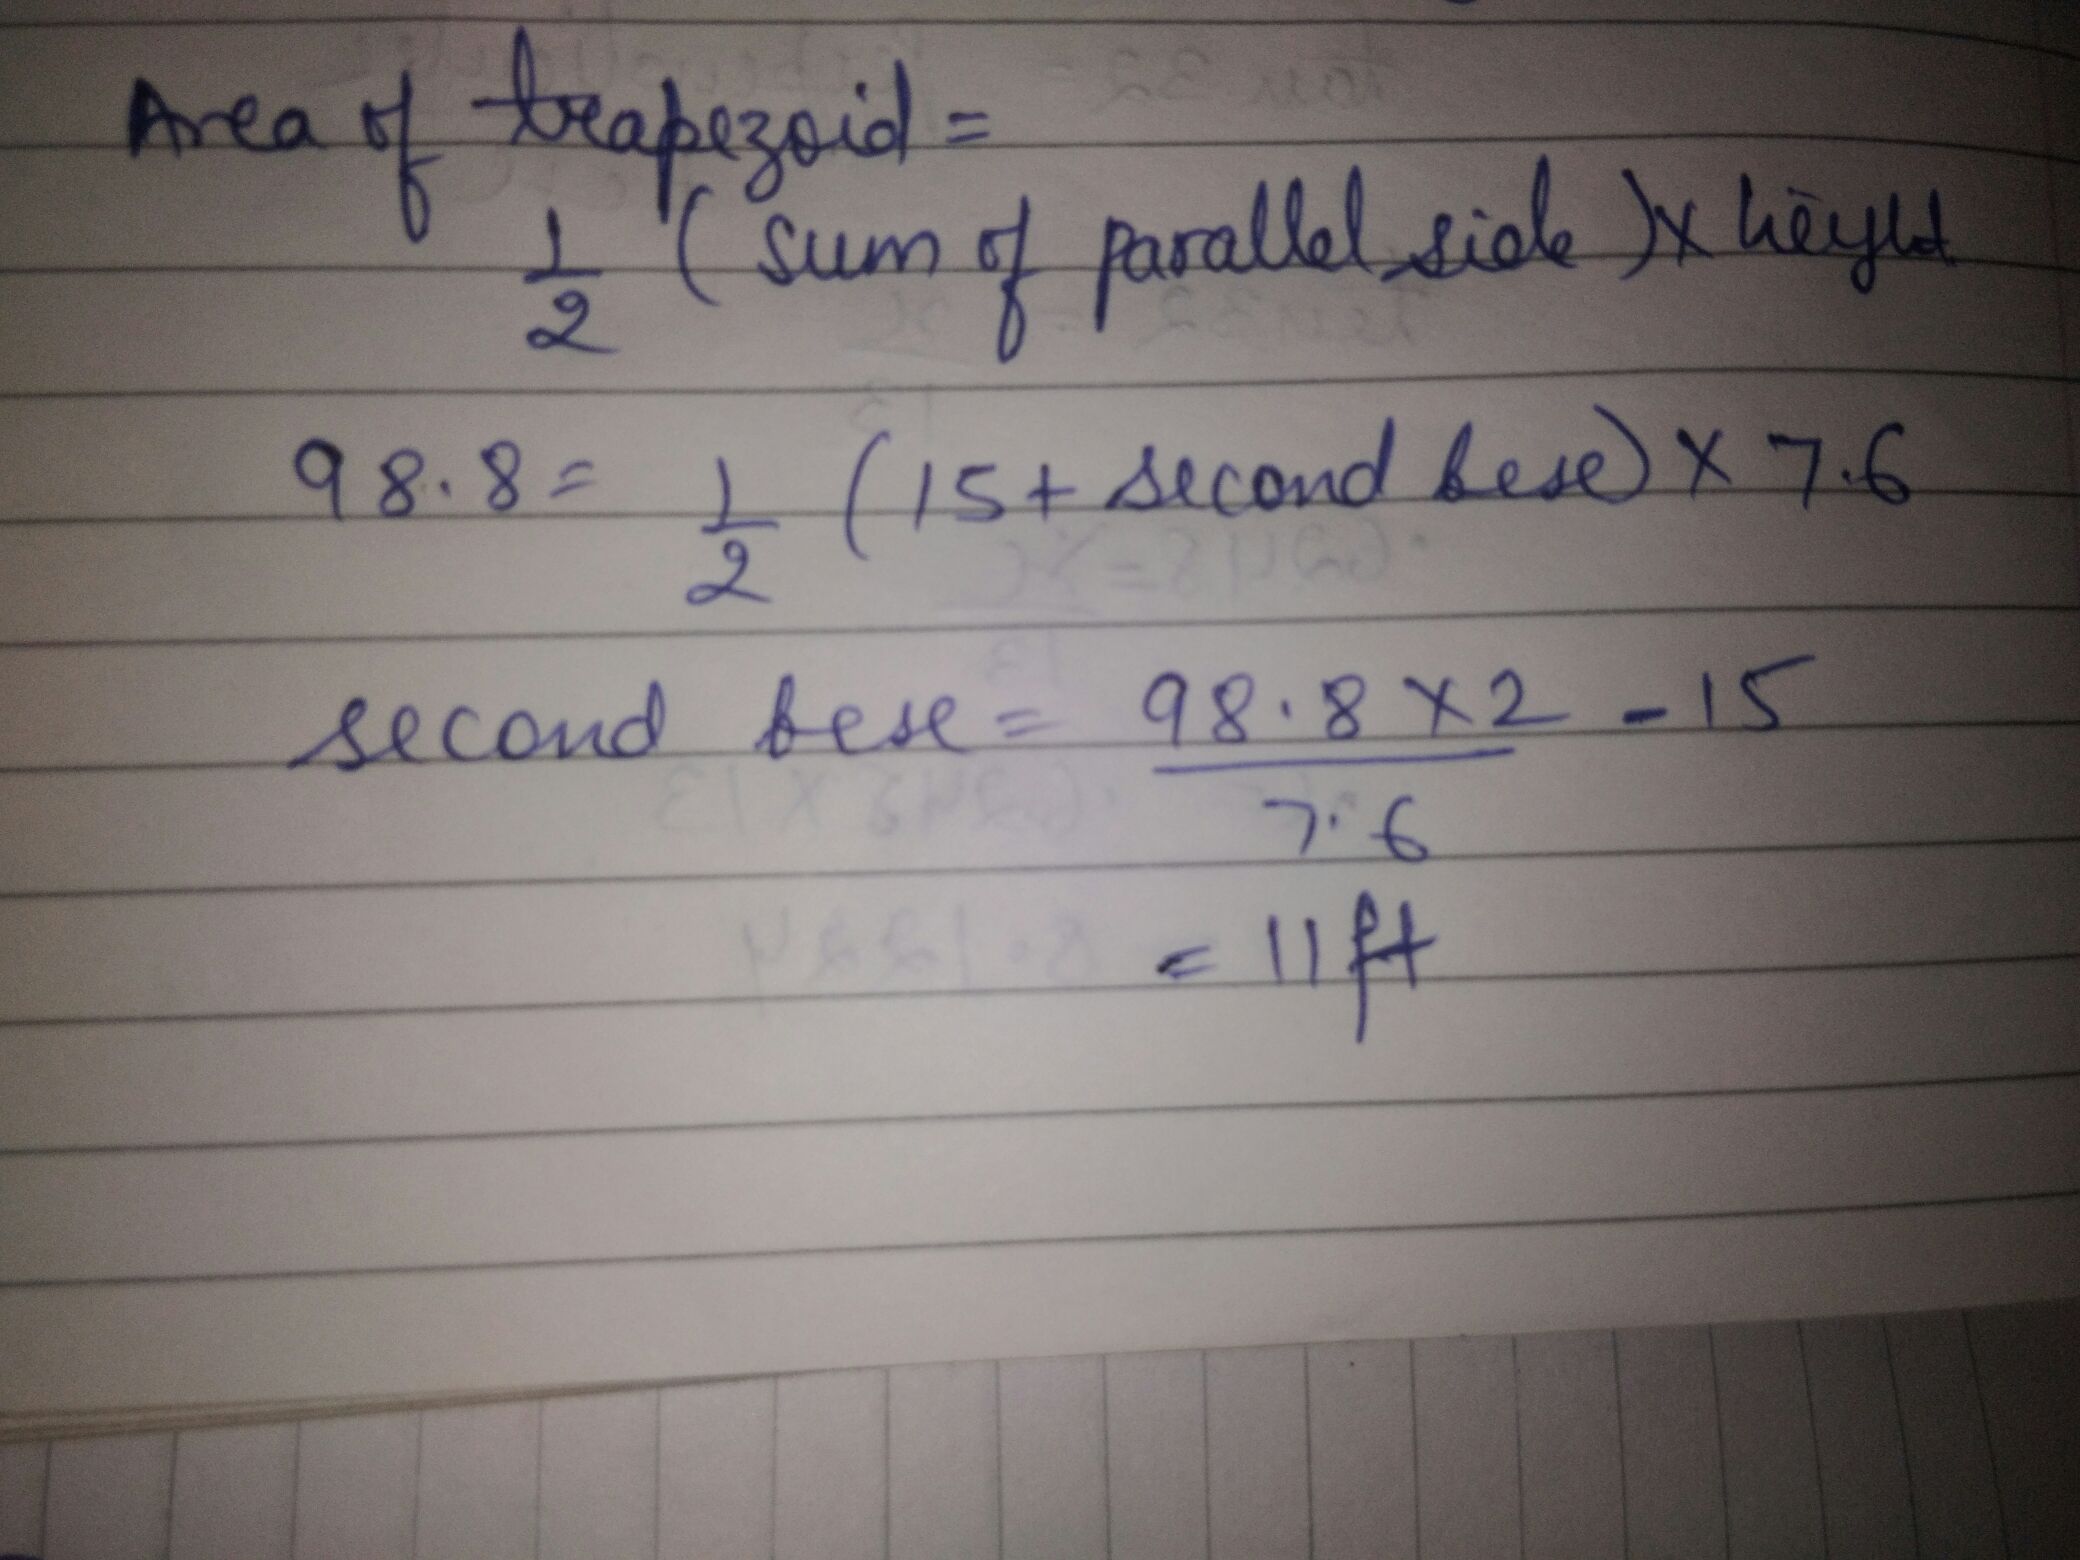 Area of trapezoid =
1/2 (sum of parallel side) x height
98.8 = 1/2 (15 + second bese) x 7.6
second bese = 98.8 x 2 / 7.6 - 15
= 11 ft